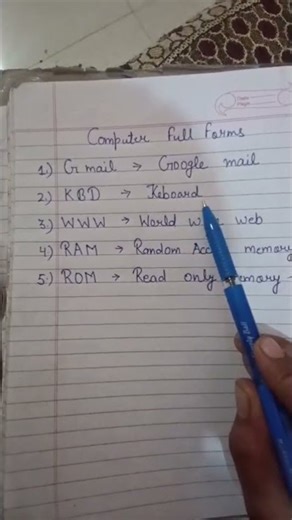 Computer Full Forms
1.) G mail → Google mail
2.) KBD → Keboard
3.) WWW → World web
4.) RAM → Random memory
5.) ROM → Read only memory